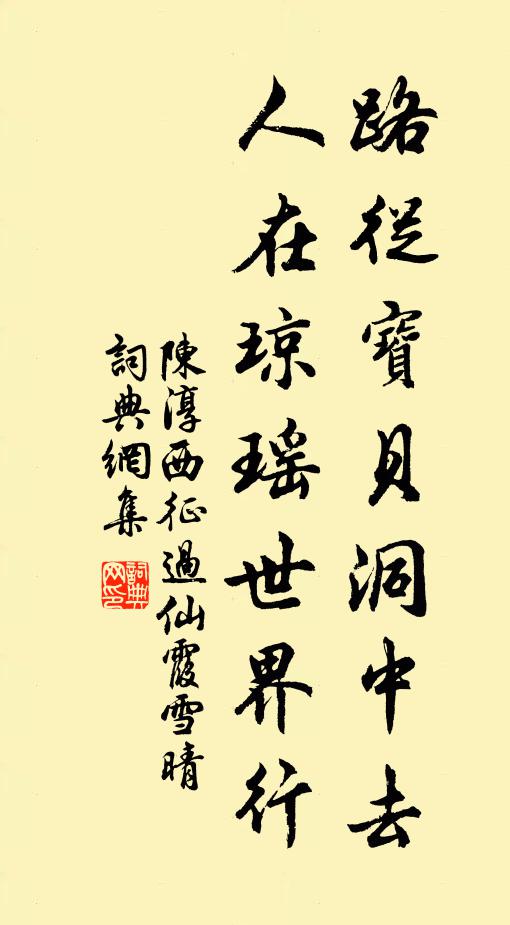 路從寶貝洞中去
人在琼瑶世界行
陳淳西征過仙霞雪晴
詞典網集
詞典
网印